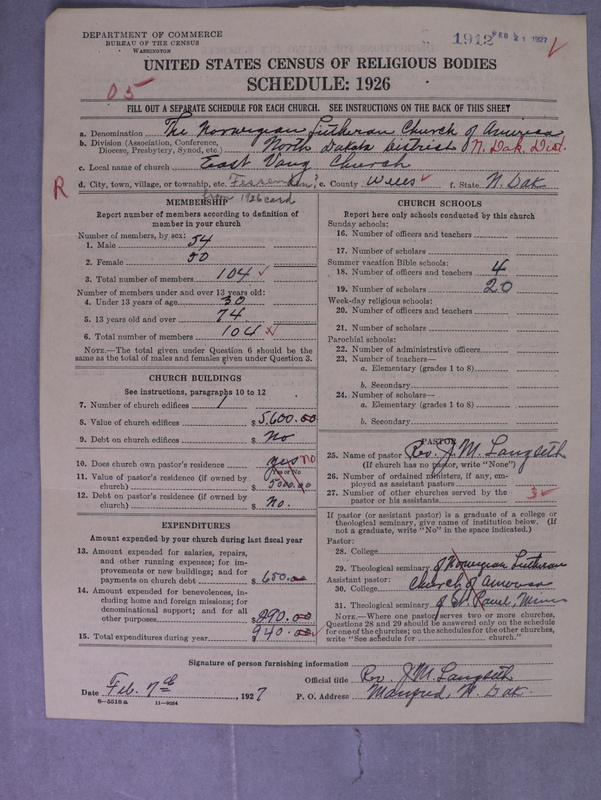 DEPARTMENT OF COMMERCE
BUREAU OF THE CENSUS
WASHINGTON
1912 FEB 21 1927
UNITED STATES CENSUS OF RELIGIOUS BODIES
SCHEDULE: 1926
05
FILL OUT A SEPARATE SCHEDULE FOR EACH CHURCH. SEE INSTRUCTIONS ON THE BACK OF THIS SHEET
a. Denomination The Norwegian Lutheran Church of America
b. Division (Association, Conference, Diocese, Presbytery, Synod, etc.) North Dakota District N. Dak. Dist.
c. Local name of church East Vang Church
R
d. City, town, village, or township, etc. e. County Wells f. State N. Dak
from 1926 card
MEMBERSHIP
Report number of members according to definition of
member in your church
Number of members, by sex:
1. Male 54
2. Female 50
3. Total number of members 104
Number of members under and over 13 years old:
4. Under 13 years of age 30
5. 13 years old and over 74
6. Total number of members 104
NOTE.—The total given under Question 6 should be the
same as the total of males and females given under Question 3.
CHURCH BUILDINGS
See instructions, paragraphs 10 to 12
7. Number of church edifices 1
8. Value of church edifices $ 5,600.00
9. Debt on church edifices $ No
10. Does church own pastor's residence yes no
Yes or No
11. Value of pastor's residence (if owned by
church) $ 5000.00
12. Debt on pastor's residence (if owned by
church) $ No.
EXPENDITURES
Amount expended by your church during last fiscal year
13. Amount expended for salaries, repairs,
and other running expenses; for im-
provements or new buildings; and for
payments on church debt $ 650.00
14. Amount expended for benevolences, in-
cluding home and foreign missions; for
denominational support; and for all
other purposes $ 290.00
15. Total expenditures during year $ 940.00
CHURCH SCHOOLS
Report here only schools conducted by this church
Sunday schools:
16. Number of officers and teachers
17. Number of scholars
Summer vacation Bible schools:
18. Number of officers and teachers 4
19. Number of scholars 20
Week-day religious schools:
20. Number of officers and teachers
21. Number of scholars
Parochial schools:
22. Number of administrative officers
23. Number of teachers—
a. Elementary (grades 1 to 8)
b. Secondary
24. Number of scholars—
a. Elementary (grades 1 to 8)
b. Secondary
PASTOR
25. Name of pastor Rev. J. M. Langseth
(If church has no pastor, write "None")
26. Number of ordained ministers, if any, em-
ployed as assistant pastors
27. Number of other churches served by the
pastor or his assistants 3
If pastor (or assistant pastor) is a graduate of a college or
theological seminary, give name of institution below. (If
not a graduate, write "No" in the space indicated.)
Pastor:
28. College
29. Theological seminary of Norwegian Lutheran
Assistant pastor: Church of America
30. College
31. Theological seminary of St. Paul, Minn
NOTE.—Where one pastor serves two or more churches,
Questions 28 and 29 should be answered only on the schedule
for one of the churches; on the schedules for the other churches,
write "See schedule for church."
Signature of person furnishing information
Official title Rev. J. M. Langseth
Date Feb. 7th, 1927 P. O. Address Manfred, N. Dak.
8—5518a 11—9264